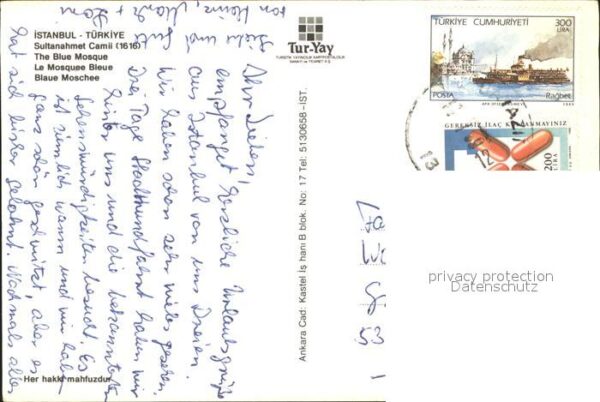 İSTANBUL - TÜRKİYE
Sultanahmet Camii (1616)
The Blue Mosque
Le Mosquee Bleue
Blaue Moschee
Tur-Yay
Ihr Lieben!
empfanget herzliche Urlaubsgrüße
aus Istanbul von uns Dreien.
Wir haben schon sehr vieles gesehen.
Drei Tage Stadtrundfahrt haben wir
hinter uns und die bekanntesten
Sehenswürdigkeiten besucht. Es
ist ziemlich warm und wir haben
ganz schön geschwitzt, aber es
hat sich bisher gelohnt. Nochmals alles
Gute und
von Heinz,
Her hakkı mahfuzdur
Ankara Cad: Kastel İş hanı B blok. No: 17 Tel: 5130658 -İST.
TÜRKİYE CUMHURİYETİ
300
LİRA
POSTA
Rağbet
GEREKSİZ İLAÇ KULLANMAYINIZ
200
LİRA
53
privacy protection
Datenschutz